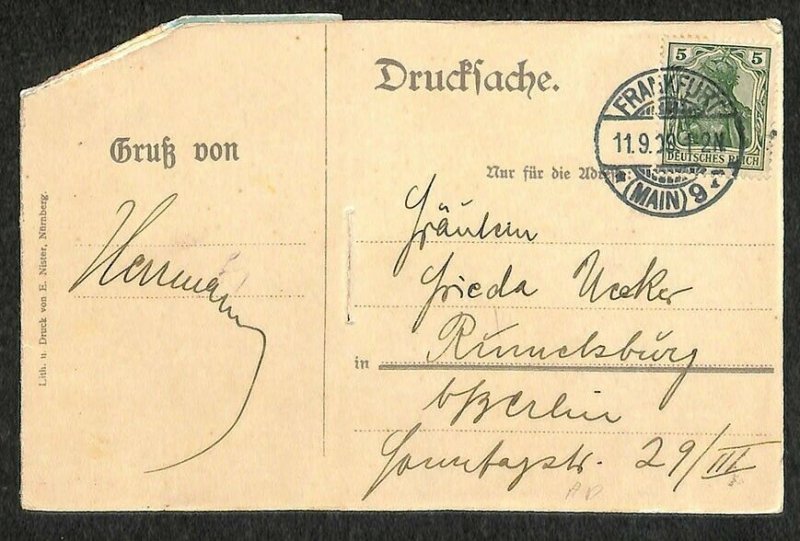 Drucksache.
5 5
DEUTSCHES REICH
FRANKFURT
11.9.09 1-2N
* (MAIN) 9 *
Gruß von
Nur für die Adresse:
Herrmann
Fräulein
Frieda Ucker
in Rummelsburg
b/Berlin
Sonntagstr. 29/III
Lith. u. Druck von E. Nister, Nürnberg.